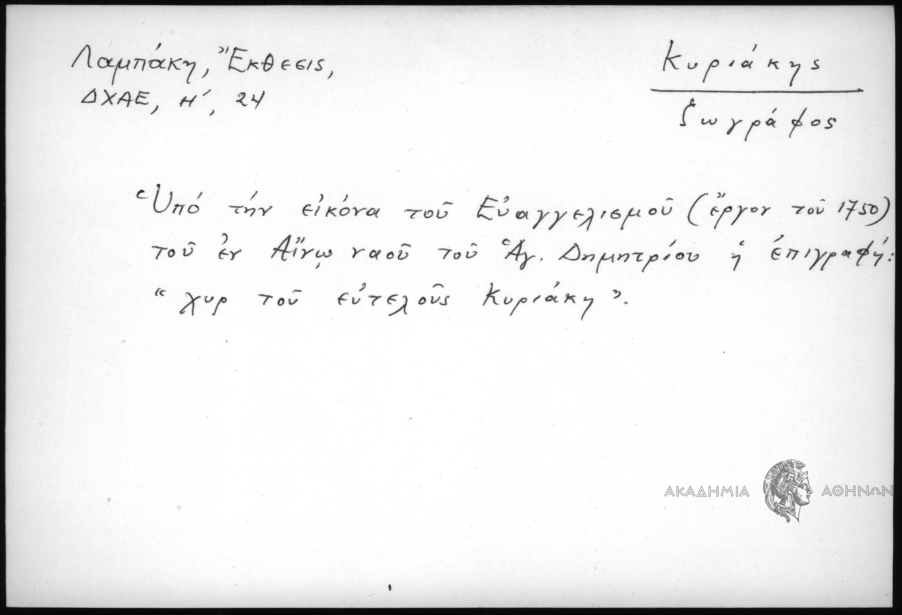 Λαμπάκη, Ἔκθεσις,
ΔΧΑΕ, Η´, 24
Κυριάκης
ζωγράφος
Ὑπό τήν εἰκόνα τοῦ Εὐαγγελισμοῦ (ἔργον τοῦ 1750)
τοῦ ἐν Αἴνῳ ναοῦ τοῦ Ἁγ. Δημητρίου ἡ ἐπιγραφή:
“ χυρ τοῦ εὐτελοῦς Κυριάκη ”.
ΑΚΑΔΗΜΙΑ ΑΘΗΝΩΝ